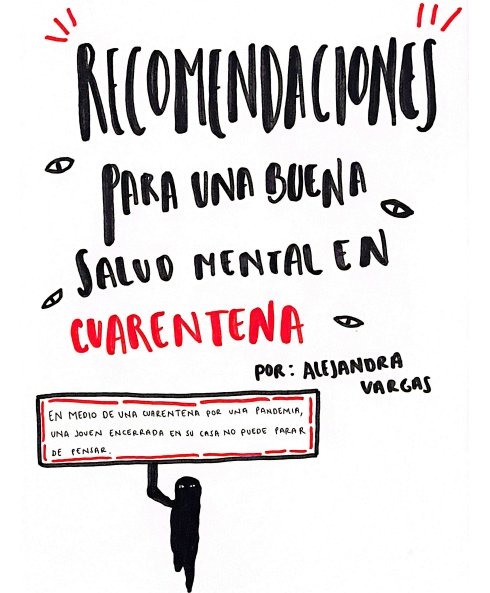 RECOMENDACIONES
PARA UNA BUENA
SALUD MENTAL EN
CUARENTENA
POR: ALEJANDRA
VARGAS
EN MEDIO DE UNA CUARENTENA POR UNA PANDEMIA,
UNA JOVEN ENCERRADA EN SU CASA NO PUEDE PARAR
DE PENSAR.